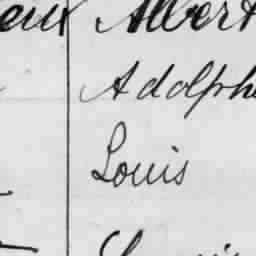 Albert
Adolphe
Louis